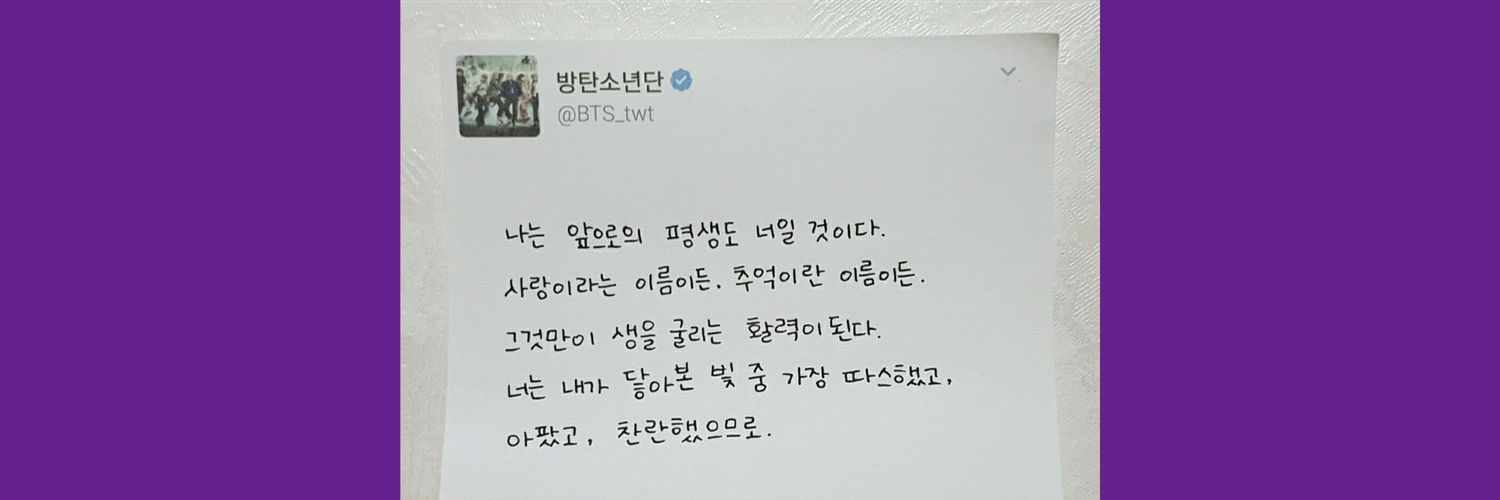 방탄소년단
@BTS_twt
나는 앞으로의 평생도 너일 것이다.
사랑이라는 이름이든, 추억이란 이름이든.
그것만이 생을 굴리는 활력이 된다.
너는 내가 닿아본 빛 중 가장 따스했고,
아팠고, 찬란했으므로.